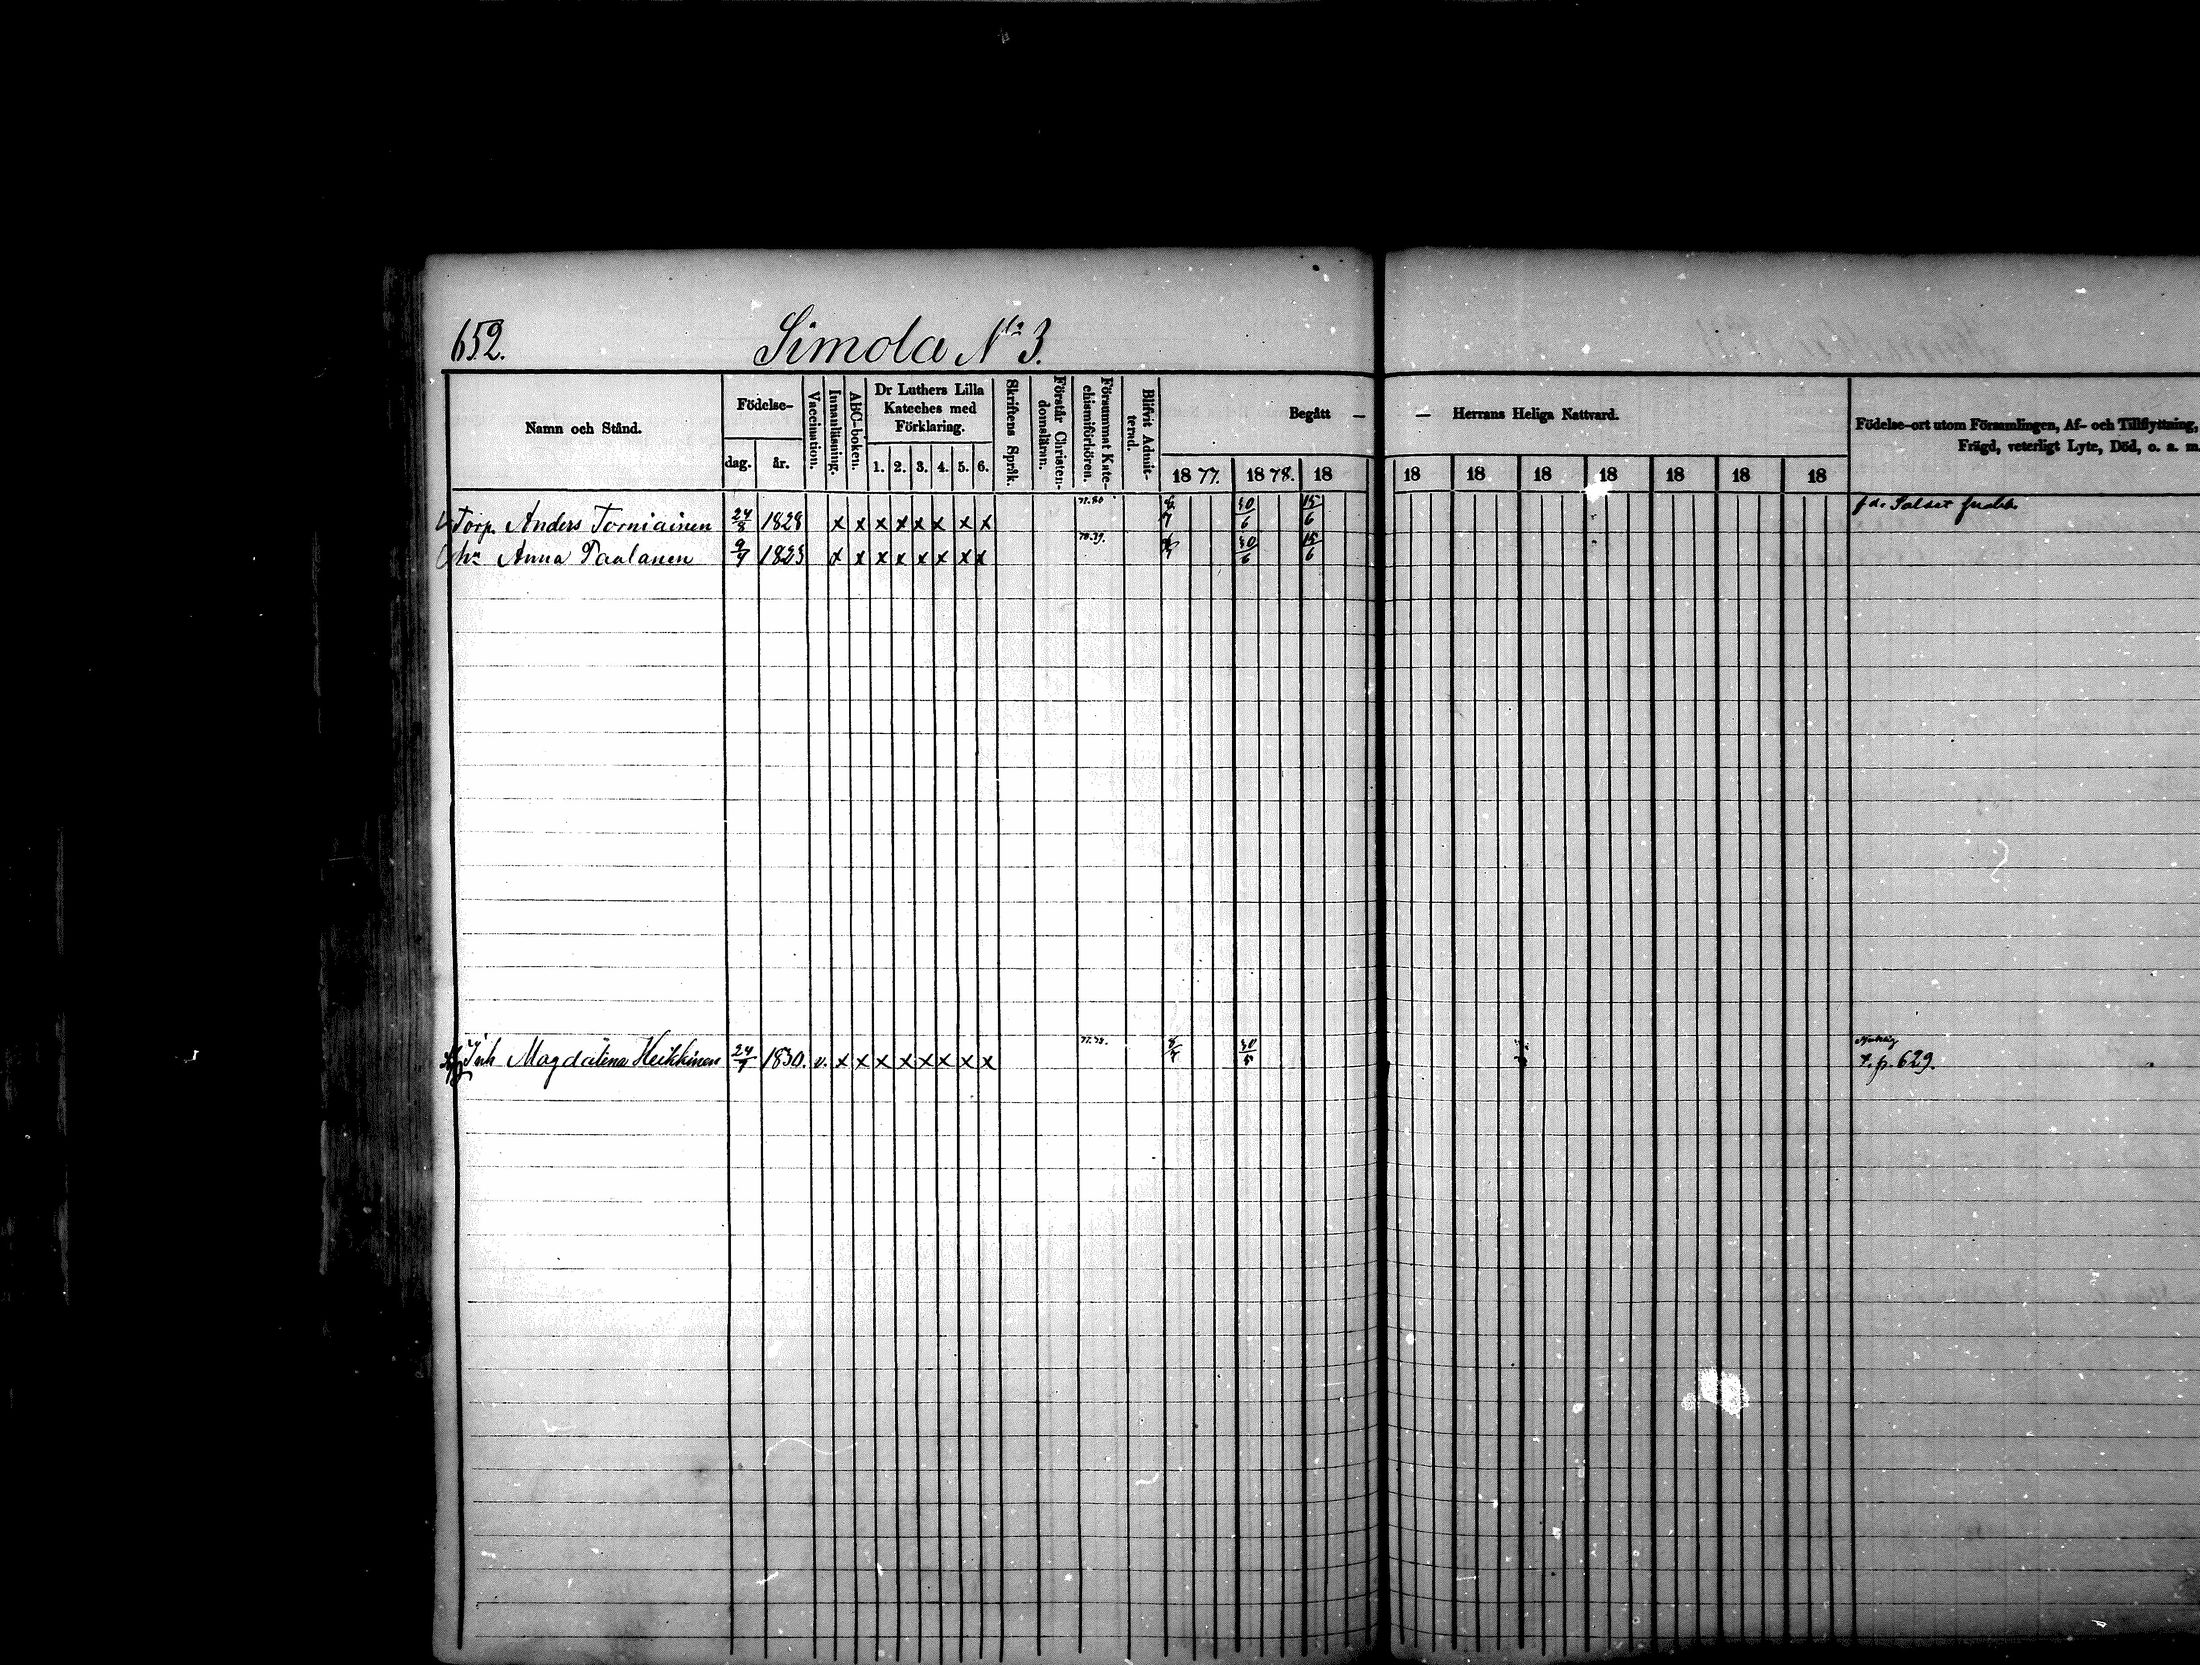 652. Simola No 3.
Namn och Stånd. Födelse- dag. år. Vaccination. Innanläsning. ABC-boken. Dr Luthers Lilla Kateches med Förklaring. 1. 2. 3. 4. 5. 6. Skriftens Språk. Förstår Christendomsläran. Försummat Katechismiförhören. Blifvit Admitterad. Begått — — Herrans Heliga Nattvard. Födelse-ort utom Församlingen, Af- och Tillflyttning,
Frägd, veterligt Lyte, Död, o. a. m.
18 77. 18 78. 18 18 18 18 18 18 18 18
Torp. Anders Torniainen 24/8 1828 x x x x x x x x 77.80 30/6 15/6 f.d. Soldat
hu Anna Paalanen 9/7 1823 x x x x x x x x 78.79. 30/6 15/6
Inh Magdalena Heikkinen 24/7 1830. v. x x x x x x x x 77.78. 30/5 t. p. 629.